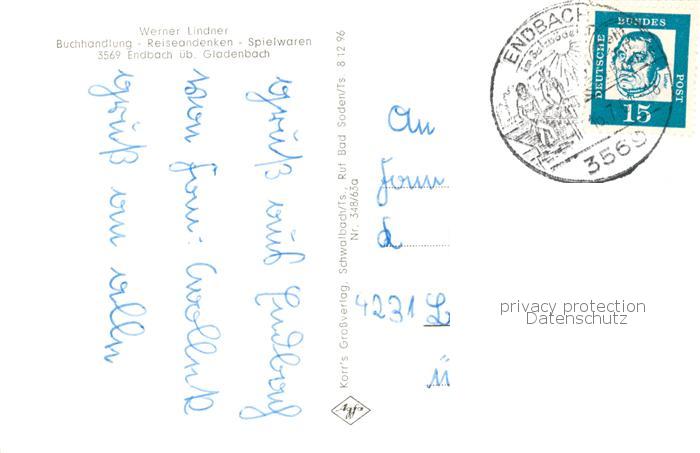 Werner Lindner
Buchhandlung - Reiseandenken - Spielwaren
3569 Endbach üb. Gladenbach
Gruß aus Endbach
von Fam.
Gruß an alle
Korr's Großverlag, Schwalbach/Ts., Ruf Bad Soden/Ts. 8 12 96
Nr. 348/63a
Agfa
An
Fam
4231
ENDBACH
3569
DEUTSCHE BUNDES POST
15
privacy protection
Datenschutz